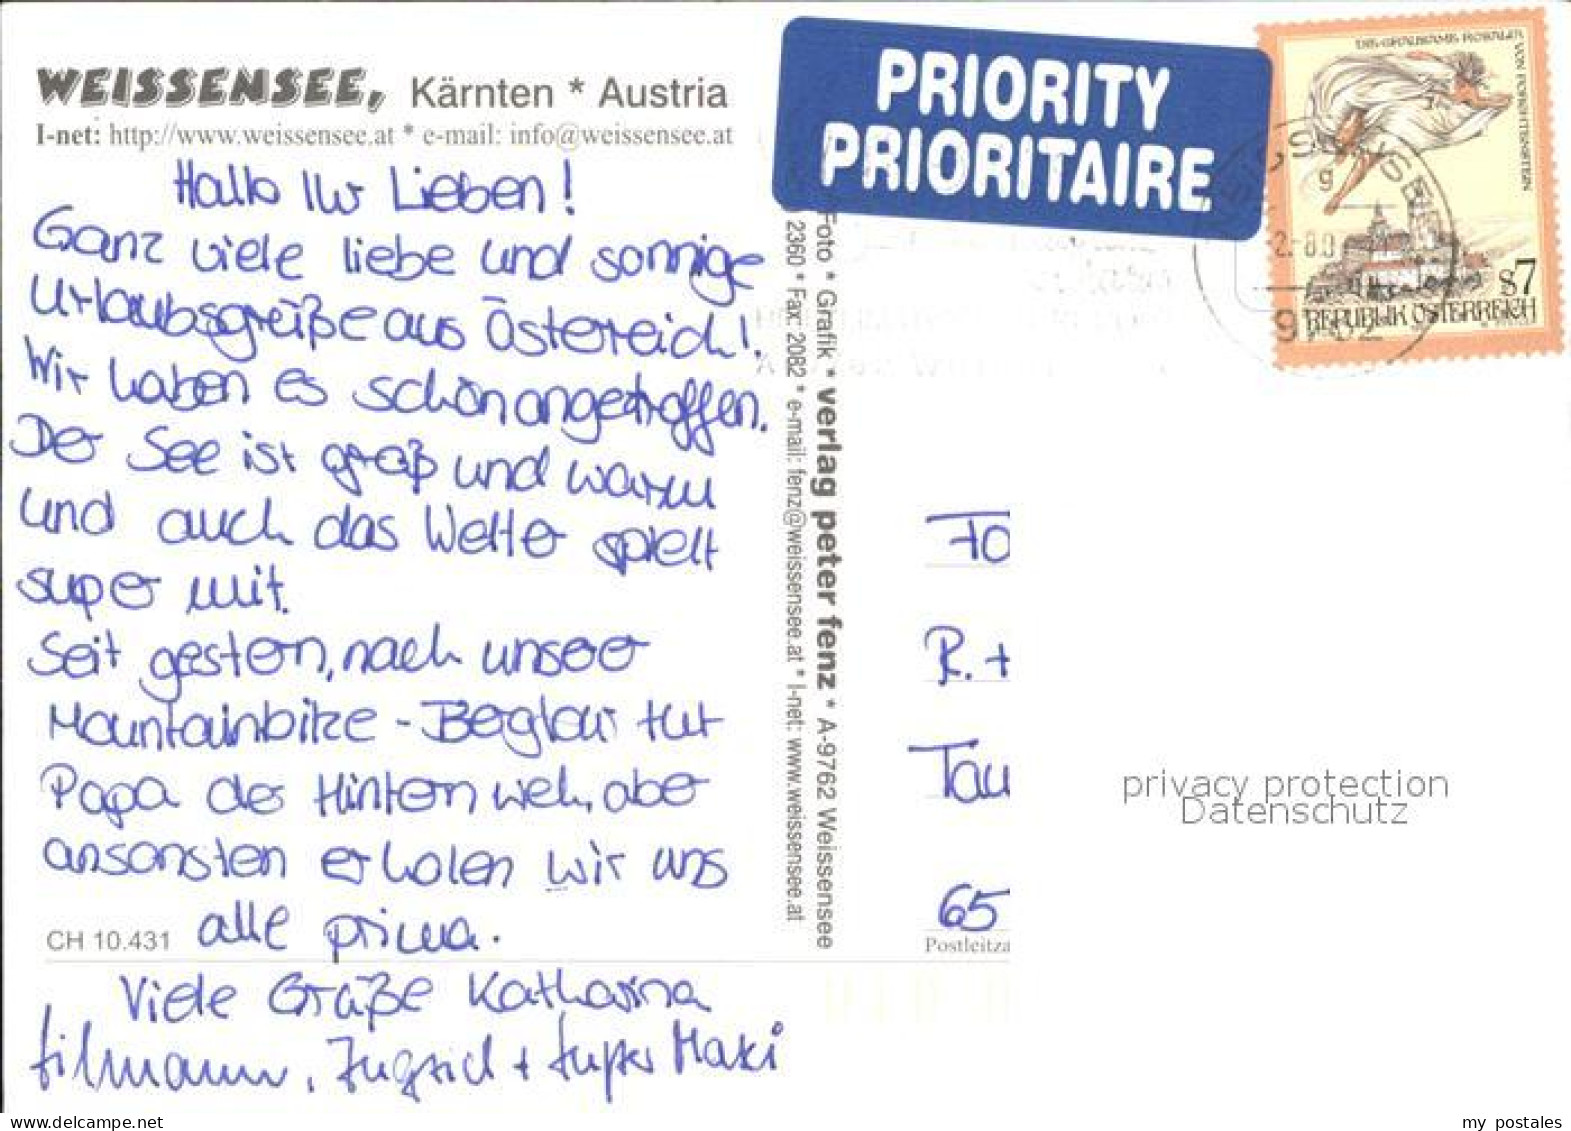 WEISSENSEE, Kärnten * Austria
I-net: http://www.weissensee.at * e-mail: info@weissensee.at
Hallo Ihr Lieben!
Ganz viele liebe und sonnige
Urlaubsgrüße aus Österreich!
Wir haben es schön angetroffen.
Der See ist groß und warm
und auch das Wetter spielt
super mit.
Seit gestern, nach unserer
Mountainbike-Bergtour tut
Papa der Hintern weh, aber
ansonsten erholen wir uns
alle prima.
CH 10.431
Viele Grüße Katharina
Tilmann, + Super Maxi
Foto * Grafik * verlag peter fenz * A-9762 Weissensee
2360 * Fax: 2082 * e-mail: fenz@weissensee.at * I-net: www.weissensee.at
PRIORITY
PRIORITAIRE
DIE GRAUSAME ROSALIA
VON FORCHTENSTEIN
S7
REPUBLIK ÖSTERREICH
R. +
Tau
65
Postleitza
privacy protection
Datenschutz
www.delcampe.net
my_postales